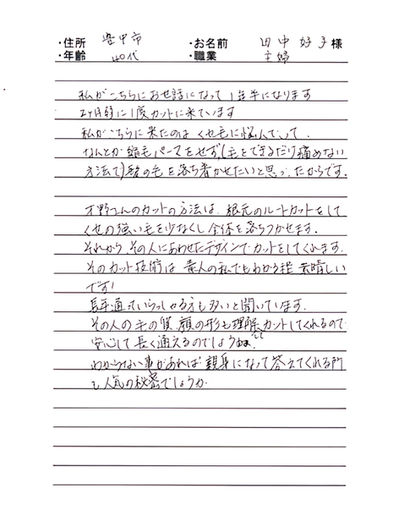 ・住所 豊中市 ・お名前 田中好子様
・年齢 40代 ・職業 主婦
私がこちらにお世話になって1年半になります
2ヶ月弱に1度カットに来ています
私がこちらに来たのは くせ毛に悩んでいて、
なんとか縮毛パーマをせず(毛をできるだけ痛めない
方法で)髪の毛を落ち着かせたいと思ったからです。
才野さんのカットの方法は、根元のルートカットをして
くせの強い毛を少なくし全体を落ちつかせます。
それから、その人にあわせたデザインでカットをしてくれます。
そのカット技術は 素人の私でもわかる程 素晴しい
です!
長年通っていらっしゃる方も多いと聞いています。
その人の毛の質、顔の形も理解しカットしてくれるので
安心して長く通えるのでしょうね。
わからない事があれば 親身になって答えてくれる所
も人気の秘密でしょうか